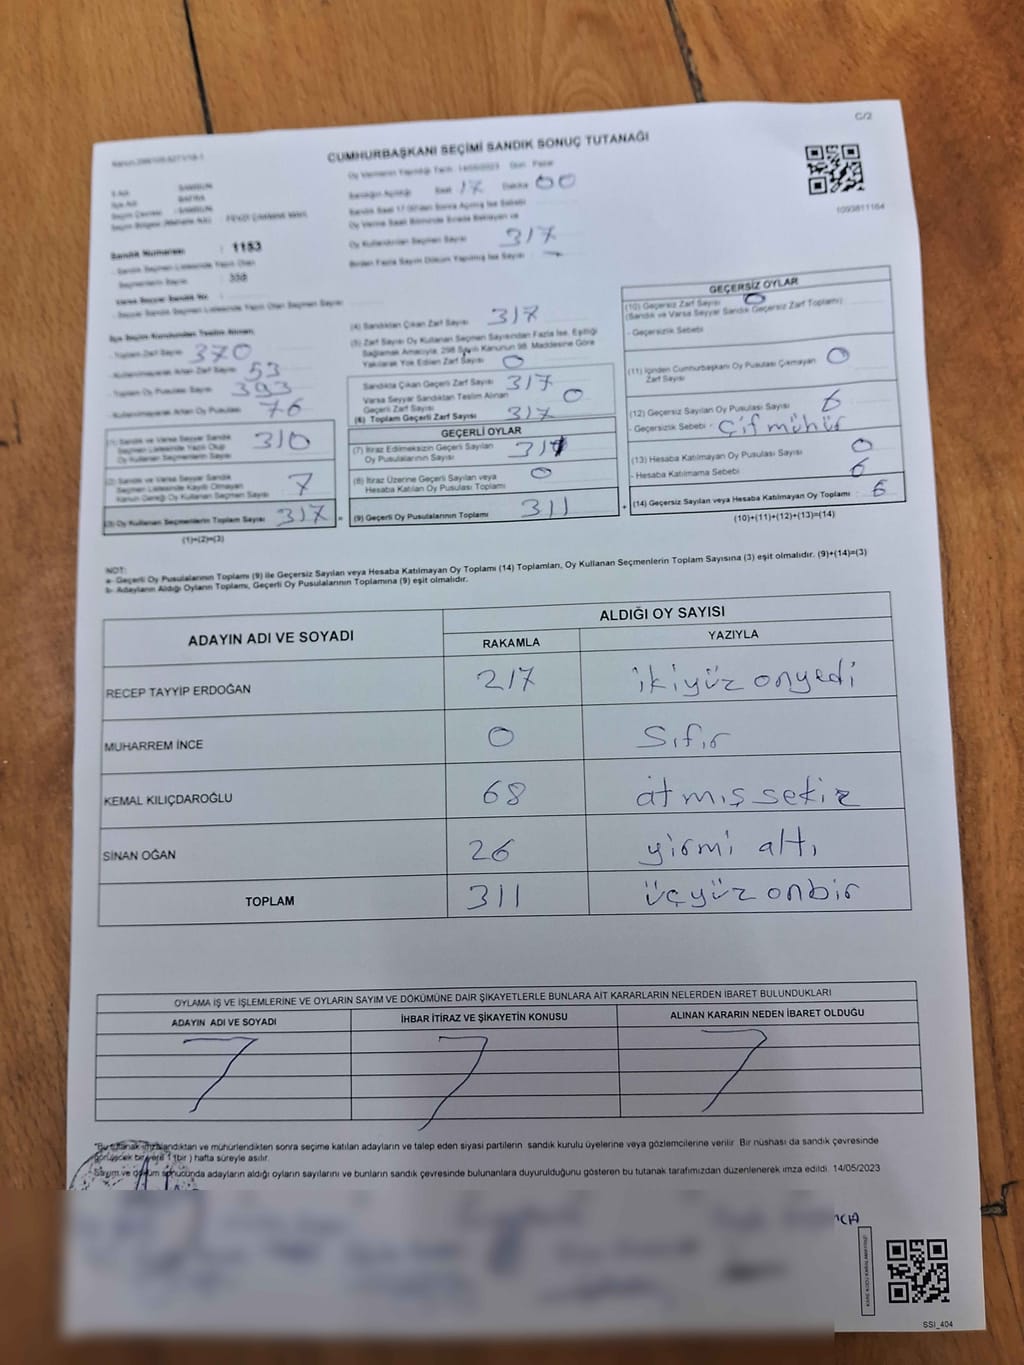 C/2
CUMHURBAŞKANI SEÇİMİ SANDIK SONUÇ TUTANAĞI
Oy Vermenin Yapıldığı Tarih : 14/05/2023 Gün : Pazar
Sandığın Açıldığı Saat 17 Dakika 00
Sandık Saat 17:00'den Sonra Açılmış İse Sebebi
Oy Verme Saati Bitiminde Sırada Bekleyen ve
Oy Kullandırılan Seçmen Sayısı 317
Birden Fazla Sayım Döküm Yapılmış İse Sayısı -
1093811164
İl Adı SAMSUN
İlçe Adı BAFRA
Seçim Çevresi : SAMSUN
Seçim Bölgesi (Mahalle Adı) : FEVZİ ÇAKMAK MAH.
Sandık Numarası : 1153
- Sandık Seçmen Listesinde Yazılı Olan
Seçmenlerin Sayısı : 358
Varsa Seyyar Sandık Nr. :
- Seyyar Sandık Seçmen Listesinde Yazılı Olan Seçmen Sayısı :
İlçe Seçim Kurulundan Teslim Alınan;
- Toplam Zarf Sayısı 370
- Kullanılmayarak Artan Zarf Sayısı 53
- Toplam Oy Pusulası Sayısı 393
- Kullanılmayarak Artan Oy Pusulası 76
(1) Sandık ve Varsa Seyyar Sandık
Seçmen Listesinde Yazılı Olup
Oy Kullanan Seçmenlerin Sayısı 310
(2) Sandık ve Varsa Seyyar Sandık
Seçmen Listesinde Kayıtlı Olmayan
Kanun Gereği Oy Kullanan Seçmen Sayısı 7
(3) Oy Kullanan Seçmenlerin Toplam Sayısı 317
(1)+(2)=(3)
(4) Sandıktan Çıkan Zarf Sayısı 317
(5) Zarf Sayısı Oy Kullanan Seçmen Sayısından Fazla İse, Eşitliği
Sağlamak Amacıyla, 298 Sayılı Kanunun 98. Maddesine Göre
Yakılarak Yok Edilen Zarf Sayısı 0
Sandıkta Çıkan Geçerli Zarf Sayısı 317
Varsa Seyyar Sandıktan Teslim Alınan
Geçerli Zarf Sayısı 0
(6) Toplam Geçerli Zarf Sayısı 317
GEÇERLİ OYLAR
(7) İtiraz Edilmeksizin Geçerli Sayılan
Oy Pusulalarının Sayısı 311
(8) İtiraz Üzerine Geçerli Sayılan veya
Hesaba Katılan Oy Pusulası Toplamı 0
= (9) Geçerli Oy Pusulalarının Toplamı 311
GEÇERSİZ OYLAR
(10) Geçersiz Zarf Sayısı 0
(Sandık ve Varsa Seyyar Sandık Geçersiz Zarf Toplamı)
- Geçersizlik Sebebi
(11) İçinden Cumhurbaşkanı Oy Pusulası Çıkmayan
Zarf Sayısı 0
(12) Geçersiz Sayılan Oy Pusulası Sayısı 6
- Geçersizlik Sebebi - Çif mühür
(13) Hesaba Katılmayan Oy Pusulası Sayısı 0
- Hesaba Katılmama Sebebi 6
+ (14) Geçersiz Sayılan veya Hesaba Katılmayan Oy Toplamı : 6
(10)+(11)+(12)+(13)=(14)
NOT:
a- Geçerli Oy Pusulalarının Toplamı (9) ile Geçersiz Sayılan veya Hesaba Katılmayan Oy Toplamı (14) Toplamları, Oy Kullanan Seçmenlerin Toplam Sayısına (3) eşit olmalıdır. (9)+(14)=(3)
b- Adayların Aldığı Oyların Toplamı, Geçerli Oy Pusulalarının Toplamına (9) eşit olmalıdır.
ADAYIN ADI VE SOYADI
ALDIĞI OY SAYISI
RAKAMLA YAZIYLA
RECEP TAYYİP ERDOĞAN 217 ikiyüz onyedi
MUHARREM İNCE 0 Sıfır
KEMAL KILIÇDAROĞLU 68 atmış sekiz
SİNAN OĞAN 26 yirmi altı
TOPLAM 311 üçyüz onbir
OYLAMA İŞ VE İŞLEMLERİNE VE OYLARIN SAYIM VE DÖKÜMÜNE DAİR ŞİKAYETLERLE BUNLARA AİT KARARLARIN NELERDEN İBARET BULUNDUKLARI
ADAYIN ADI VE SOYADI İHBAR İTİRAZ VE ŞİKAYETİN KONUSU ALINAN KARARIN NEDEN İBARET OLDUĞU
"Bu tutanak imzalandıktan ve mühürlendikten sonra seçime katılan adayların ve talep eden siyasi partilerin sandık kurulu üyelerine veya gözlemcilerine verilir. Bir nüshası da sandık çevresinde
görülecek bir yere 1 (bir) hafta süreyle asılır.
Sayım ve döküm sonucunda adayların aldığı oyların sayılarını ve bunların sandık çevresinde bulunanlara duyurulduğunu gösteren bu tutanak tarafımızdan düzenlenerek imza edildi. 14/05/2023
KARE KODU KARALAMAYINIZ!
SSI_404